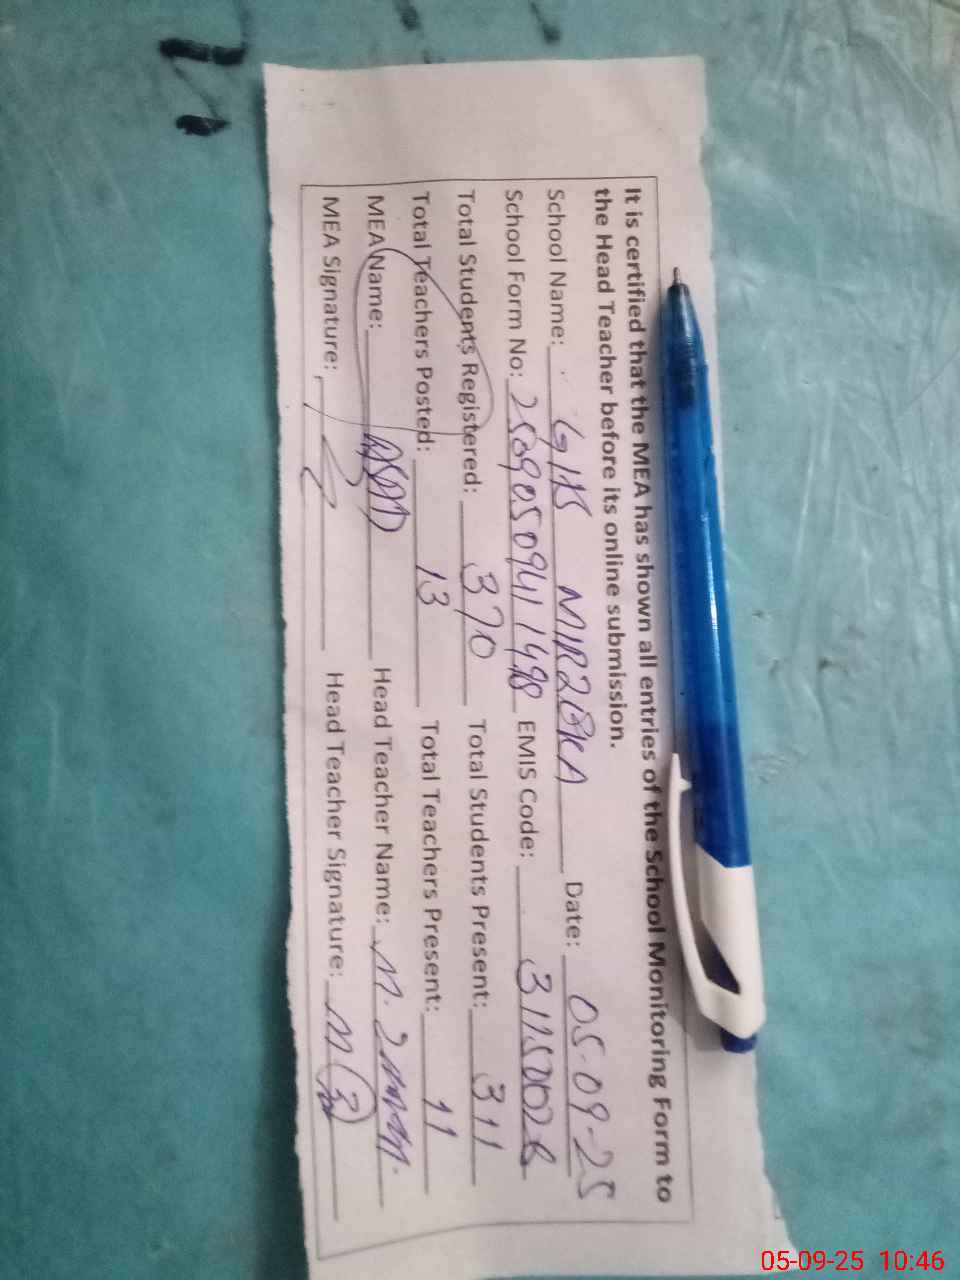 It is certified that the MEA has shown all entries of the School Monitoring Form to
the Head Teacher before its online submission.
School Name: GHS Date: 05-09-25
School Form No: EMIS Code:
Total Students Registered: 370 Total Students Present: 311
Total Teachers Posted: 13 Total Teachers Present: 11
MEA Name: Head Teacher Name: M.
MEA Signature: Head Teacher Signature:
05-09-25 10:46